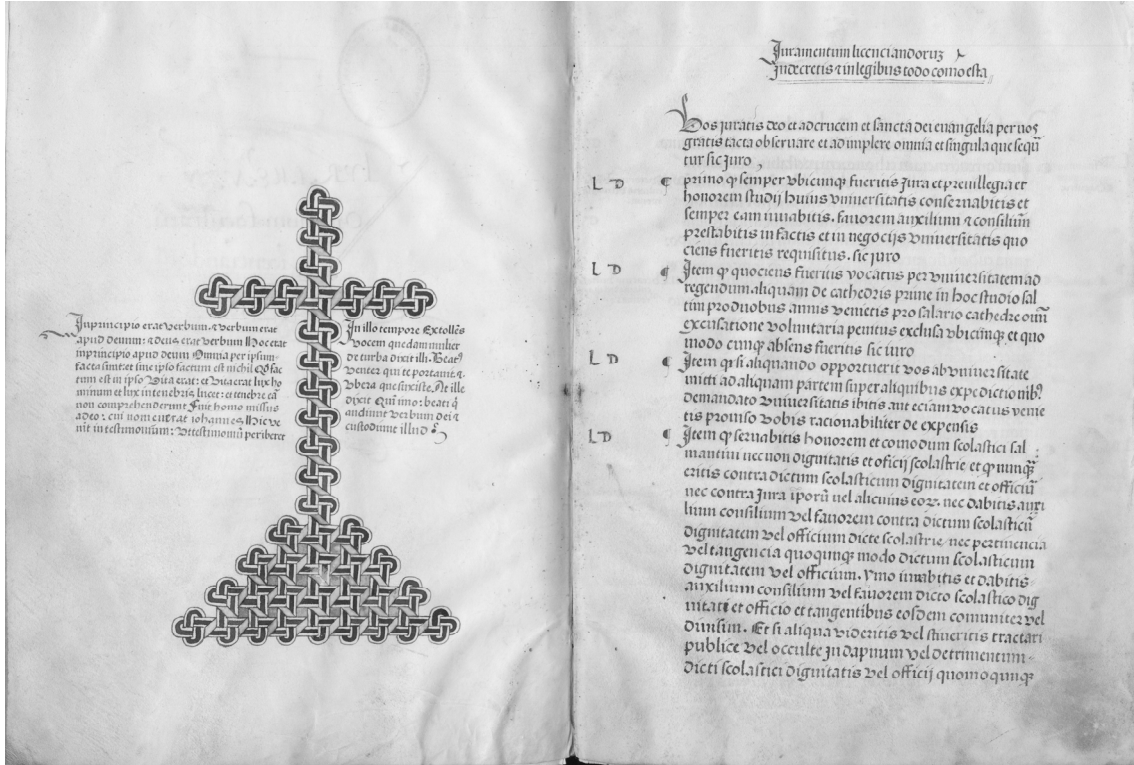 In principio erat verbum. ⁊ verbum erat
apud deum: ⁊ deus erat verbum Hoc erat
inprincipio apud deum Omnia per ipsum
facta sunt: et sine ipso factum est nichil Qđ fac
tum est in ipso Vita erat: et Vita erat lux ho
minum et lux intenebris lucet: et tenebre eā
non comprehenderunt Fuit homo missus
adeo: cui nomen erat iohannes Hic ve
nit in testimonium: Vt testimonium periberet
In illo tempore Extollēs
vocem quedam mulier
de turba dixit illi. Beatꝰ
venter qui te portavit ⁊
vbera que suxiste. At ille
dixit Quīimo: beati q̄
audiunt verbum dei ⁊
custodiunt illud
Juramentum licenciandoruꝫ
Jndecretis ⁊ inlegibus todo como esta
Vos juratis deo et adcrucem et sancta dei euangelia per uoꝫ
gratis tacta obseruare et ad implere omnia et singula que sequū
tur sic Juro
L D ¶ primo ꝙ semper vbicunqꝫ fueritis Jura et preuillegia et
honorem studij huius vniuersitatis conseruabitis et
semper eam iuuabitis. fauorem auxilium ⁊ consiliūm
prestabitis in factis et in negocijs vniuersitatis quo
ciens fueritis requisitus. sic juro
L D ¶ Jtem ꝙ quociens fueritis vocatus per vniuersitatem ad
regendum aliquam de cathedris prime in hoc studio sal
tim pro duobus annis venietis pro salario cathedre omī
excusatione voluntaria penitus exclusa vbicunqꝫ et quo
modo cunqꝫ absens fueritis sic iuro
L D ¶ Jtem ꝙ si aliquando opportuerit vos ab vniuersitate
miti ad aliquam partem super aliquibus expedictionibꝰ
demandato vniuersitatis ibitis aut eciam vocatus venie
tis prouiso vobis racionabiliter de expensis
L D ¶ Jtem ꝙ seruabitis honorem et comodum scolastici sal
mantini nec non dignitatis et oficij scolastrie et ꝙ nunqꝫ
eritis contra dictum scolasticum dignitatem et officiū
nec contra Jura iporū uel alicuius eorꝝ. nec dabitis auxi
lium consilium vel fauorem contra dictum scolasticū
dignitatem vel officium dicte scolastrie, nec pertinencia
vel tangencia quoqunqꝫ modo dictum scolasticum
dignitatem vel officium. ymo iuuabitis et dabitis
auxilium consilium vel fauorem dicto scolastico dig
nitati et officio et tangentibus eosdem comuniter vel
diuisim. Et si aliqua videritis vel sciueritis tractari
publice vel occulte Jn dapnum vel detrimentum
dicti scolastici dignitatis vel officij quomoqunqꝫ